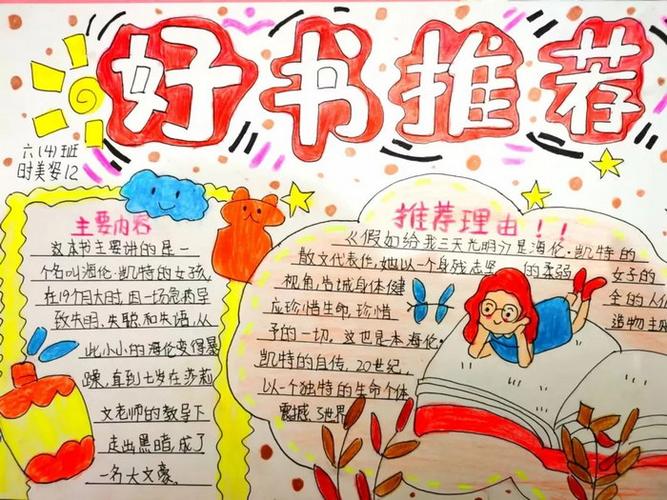 好书推荐
六(4)班
时美姿12
主要内容
这本书主要讲的是一
个名叫海伦·凯特的女孩,
在19个月大时,因一场急病导
致失明、失聪、和失语,从
此小小的海伦变得暴
躁,直到七岁在莎莉
文老师的教导下
走出黑暗,成了
一名大文豪.
推荐理由!!
《假如给我三天光明》是海伦·凯特的
散文代表作,她以一个身残志坚 的柔弱 女子的
视角,告诫身体健 全的人们
应珍惜生命,珍惜 造物主
予的一切。这也是本海伦·
凯特的自传,20世纪,
以一个独特的生命个体
震撼 世界